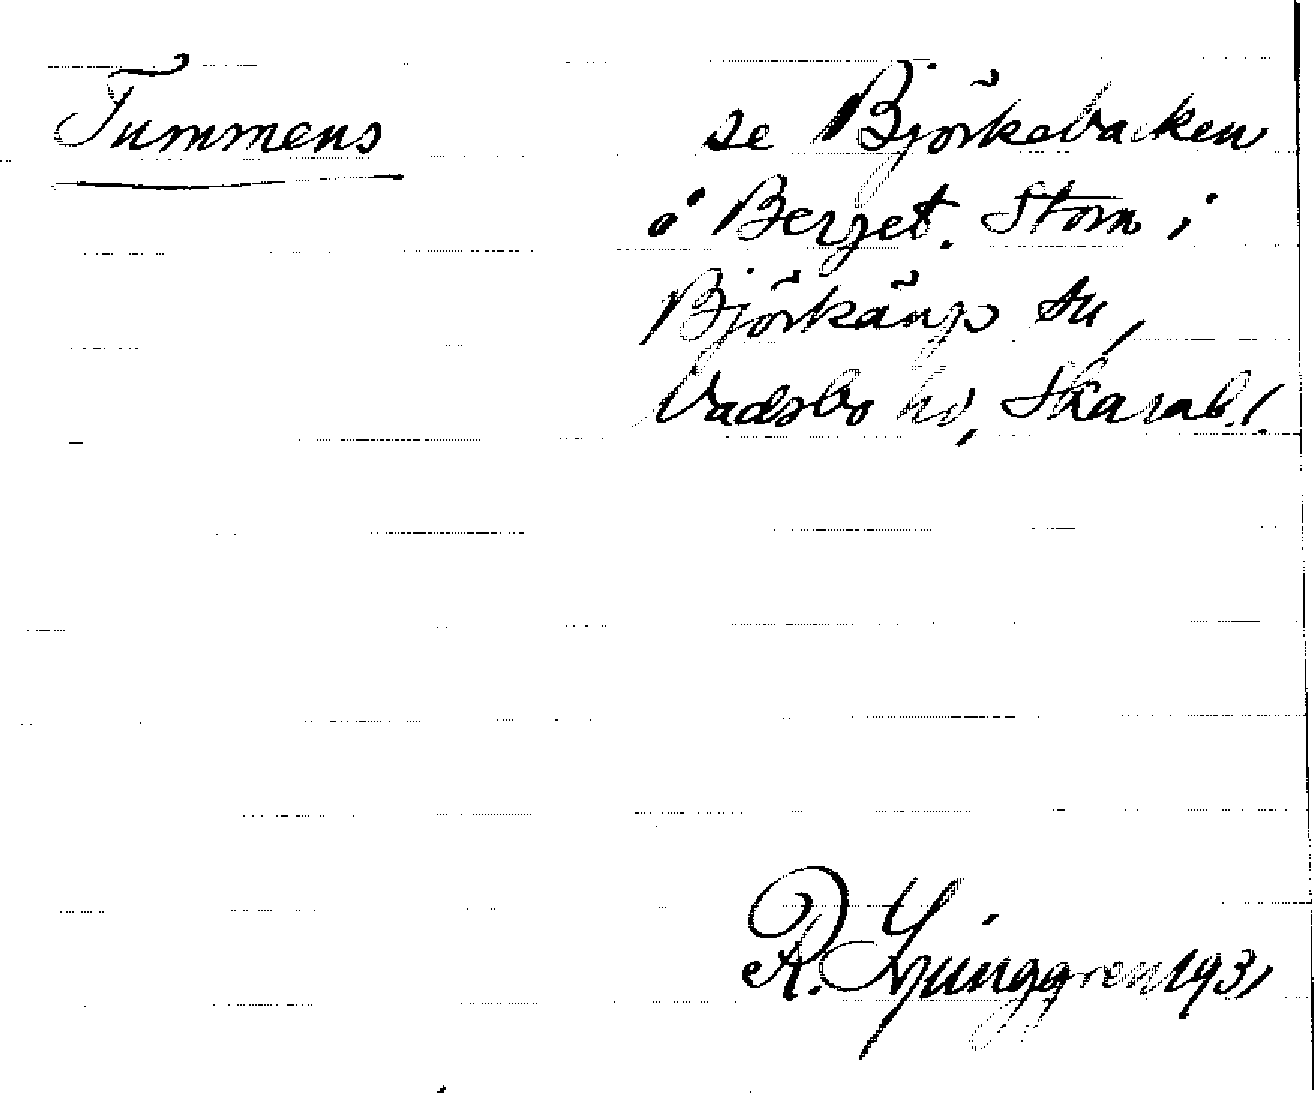 Tummens
se Björkebacken
o' Berget. Storn i
Björkängs sn,
Vadsbo hd, Skarab. l.
R. Ljunggren 1931